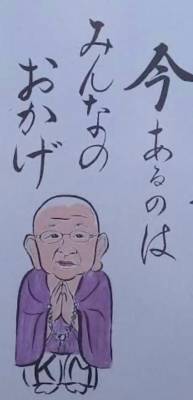 今あるのは
みんなの
おかげ
KM